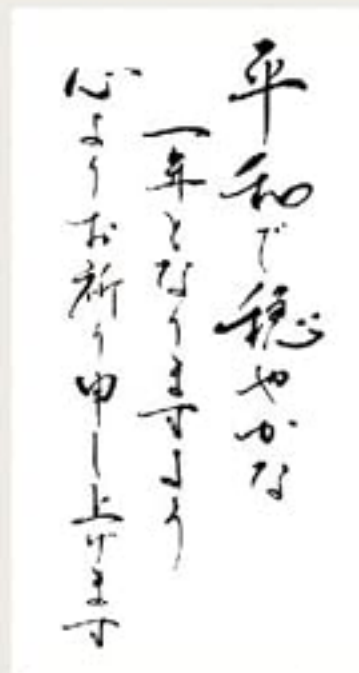 平和で穏やかな
一年となりますよう
心よりお祈り申し上げます